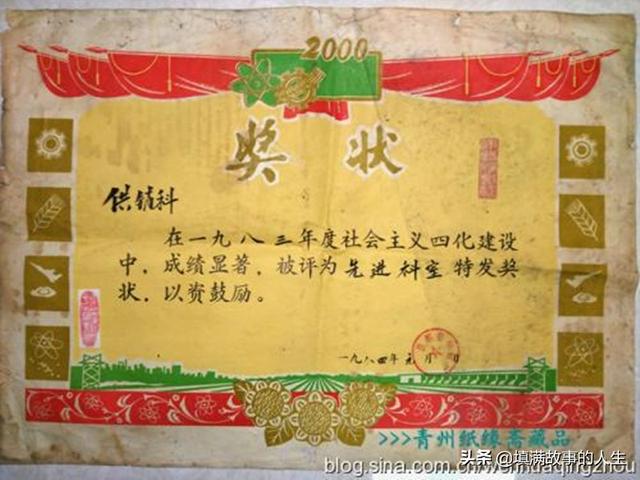 2000
奖 状
供销科
在一九八三年度社会主义四化建设
中，成绩显著，被评为先进科室特发奖
状，以资鼓励。
一九八四年元月 日
>>>青州纸缘斋藏品
头条 @填满故事的人生